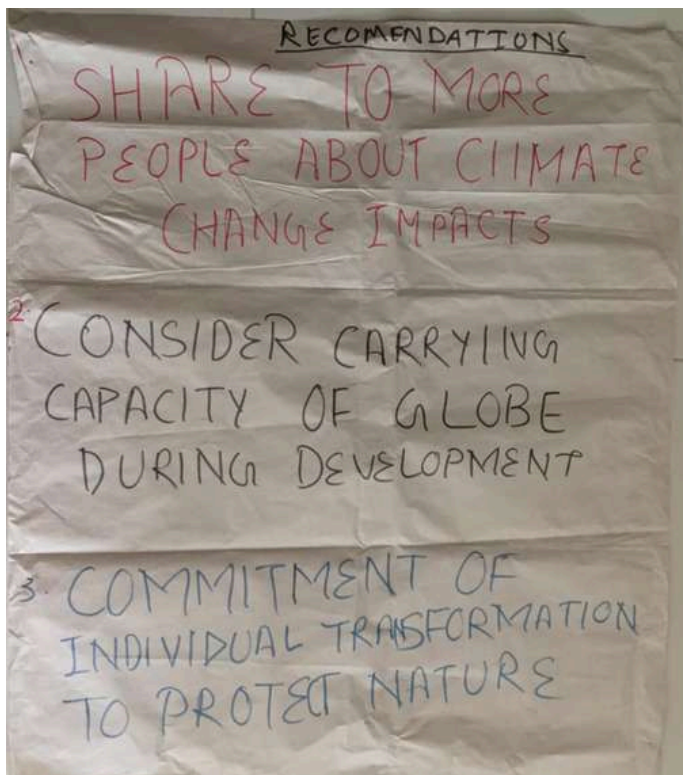 RECOMENDATIONS
SHARE TO MORE
PEOPLE ABOUT CLIMATE
CHANGE IMPACTS
2. CONSIDER CARRYING
CAPACITY OF GLOBE
DURING DEVELOPMENT
3. COMMITMENT OF
INDIVIDUAL TRANSFORMATION
TO PROTECT NATURE